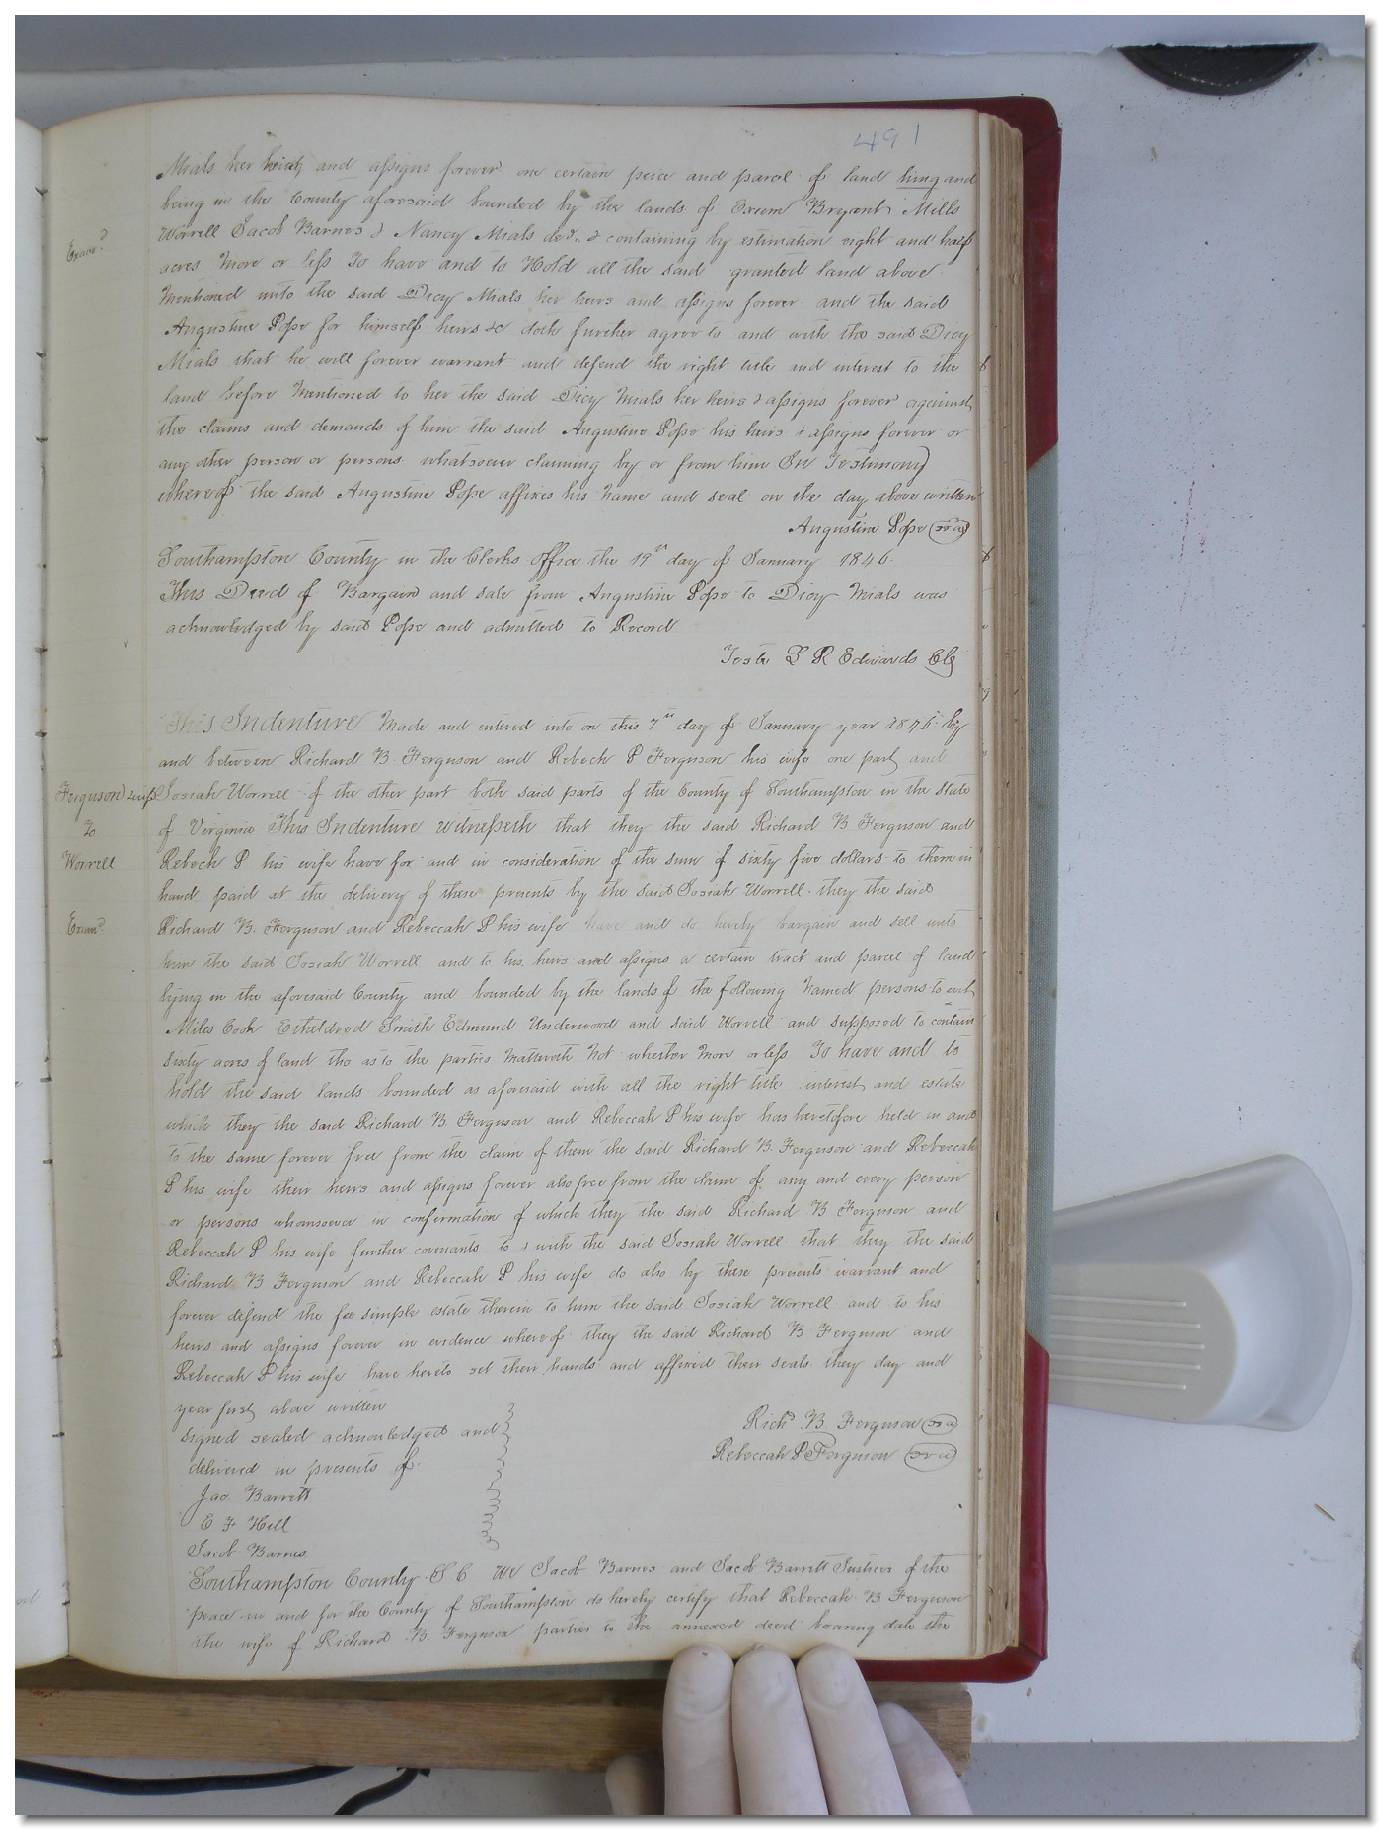 491
Mials her heirs and assigns forever one certain peice and parcel of land lying and
being in the County aforesaid bounded by the lands of Exum Bryant Mills
Worrell Jacob Barnes & Nancy Mials decd. & containing by estimation eight and half
Examd.
acres More or less To have and to Hold all the said granted land above
Mentioned unto the said Dicy Mials her heirs and assigns forever and the said
Augustine Pope for himself heirs &c doth further agree to and with the said Dicy
Mials that he will forever warrant and defend the right title and interest to the
land before Mentioned to her the said Dicy Mials her heirs & assigns forever against
the claims and demands of him the said Augustine Pope his heirs & assigns forever or
any other person or persons whatsoever claiming by or from him In Testimony
whereof the said Augustine Pope affixes his Name and seal on the day above written
Augustine Pope (seal)
Southampton County in the Clerks Office the 19th day of January 1846.
This Deed of Bargain and sale from Augustine Pope to Dicy Mials was
acknowledged by said Pope and admitted to Record
Teste L R Edwards Clk
This Indenture Made and entered into on this 7th day of January year 1846 by
and between Richard B. Ferguson and Rebech P Ferguson his wife one part and
Ferguson & wife
Josiah Worrell of the other part both said parts of the County of Southampton in the State
To
of Virginia This Indenture witnesseth that they the said Richard B Ferguson and
Worrell
Rebech P his wife have for and in consideration of the sum of sixty five dollars to them in
hand paid at the delivery of these presents by the said Josiah Worrell they the said
Examd.
Richard B. Ferguson and Rebeccah P his wife have and do hereby bargain and sell unto
him the said Josiah Worrell and to his heirs and assigns a certain tract and parcel of land
lying in the aforesaid County and bounded by the lands of the following Named persons to wit
Miles Cook Etheldred Smith Edmund Underwood and said Worrell and supposed to contain
sixty acres of land tho as to the parties Mattereth Not whether More or less To have and to
hold the said lands bounded as aforesaid with all the right title interest and estate
which they the said Richard B. Ferguson and Rebeccah P his wife has heretofore held in and
to the same forever free from the claim of them the said Richard B. Ferguson and Rebeccah
P his wife their heirs and assigns forever also free from the claim of any and every person
or persons whomsoever in confirmation of which they the said Richard B Ferguson and
Rebeccah P his wife further covenants to & with the said Josiah Worrell that they the said
Richard B Ferguson and Rebeccah P his wife do also by these presents warrant and
forever defend the fee simple estate therein to him the said Josiah Worrell and to his
heirs and assigns forever in evidence whereof they the said Richard B Ferguson and
Rebeccah P his wife have hereto set their hands and affixed their seals they day and
year first above written
Richd B. Ferguson (seal)
signed sealed acknowledged and
Rebeccah P Ferguson (seal)
delivered in presents of
Jac Barrett
E F Hill
Jacob Barnes
Southampton County S C We Jacob Barnes and Jacob Barrett Justices of the
peace in and for the County of Southampton do hereby certify that Rebeccah B Ferguson
the wife of Richard B. Ferguson parties to the annexed deed bearing date the